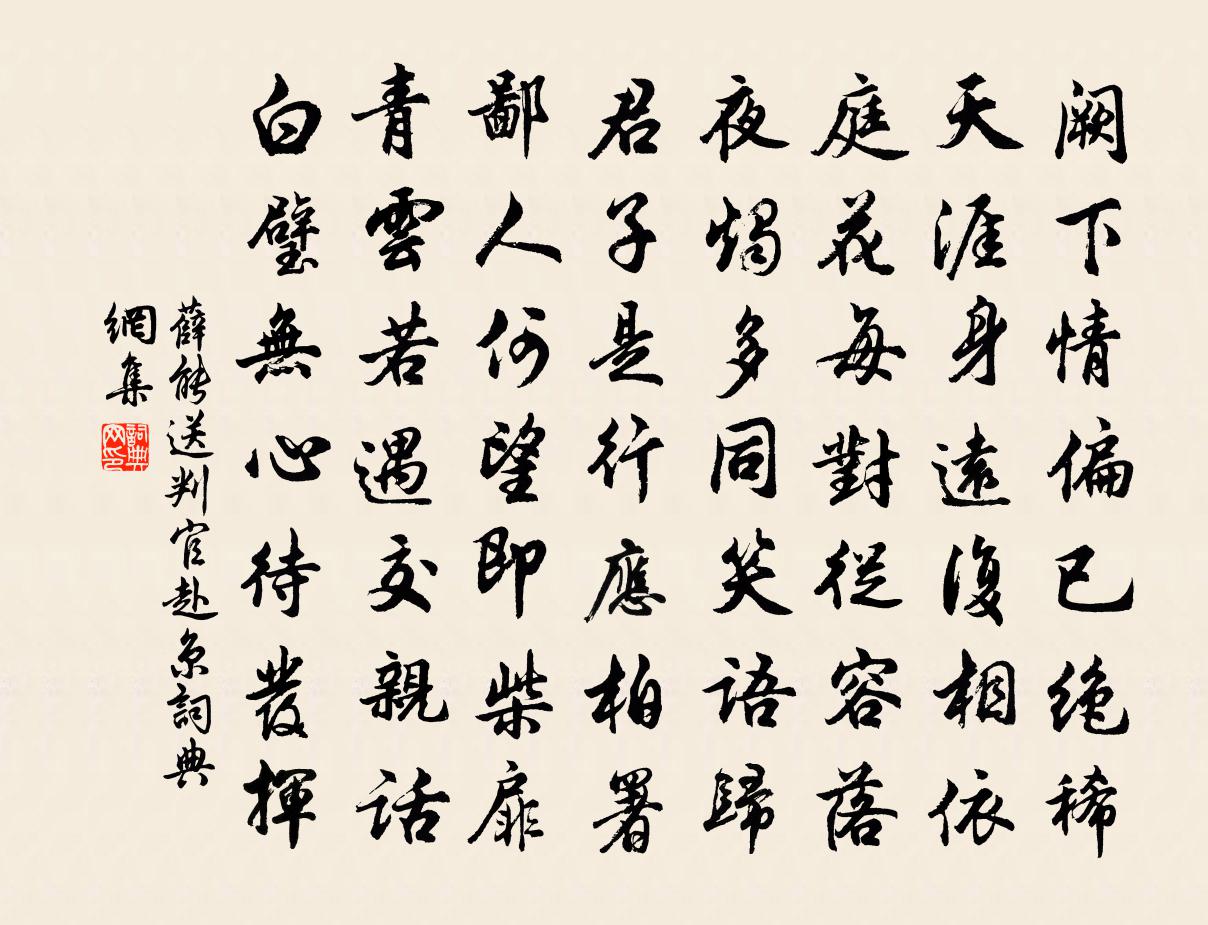 阙下情偏已绝稀
天涯身遠復相依
庭花每對從容落
夜燭多同笑語歸
君子是行應柏署
鄙人何望即柴扉
青雲若遇交親話
白璧無心待發揮
薛能送判官赴京詞典
網集
詞典
网印